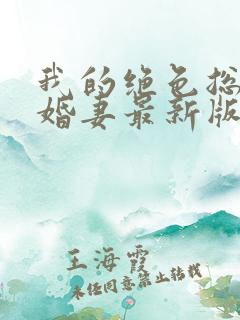 我的绝色总
婚妻最新版
王海霞
未经同意禁止转载